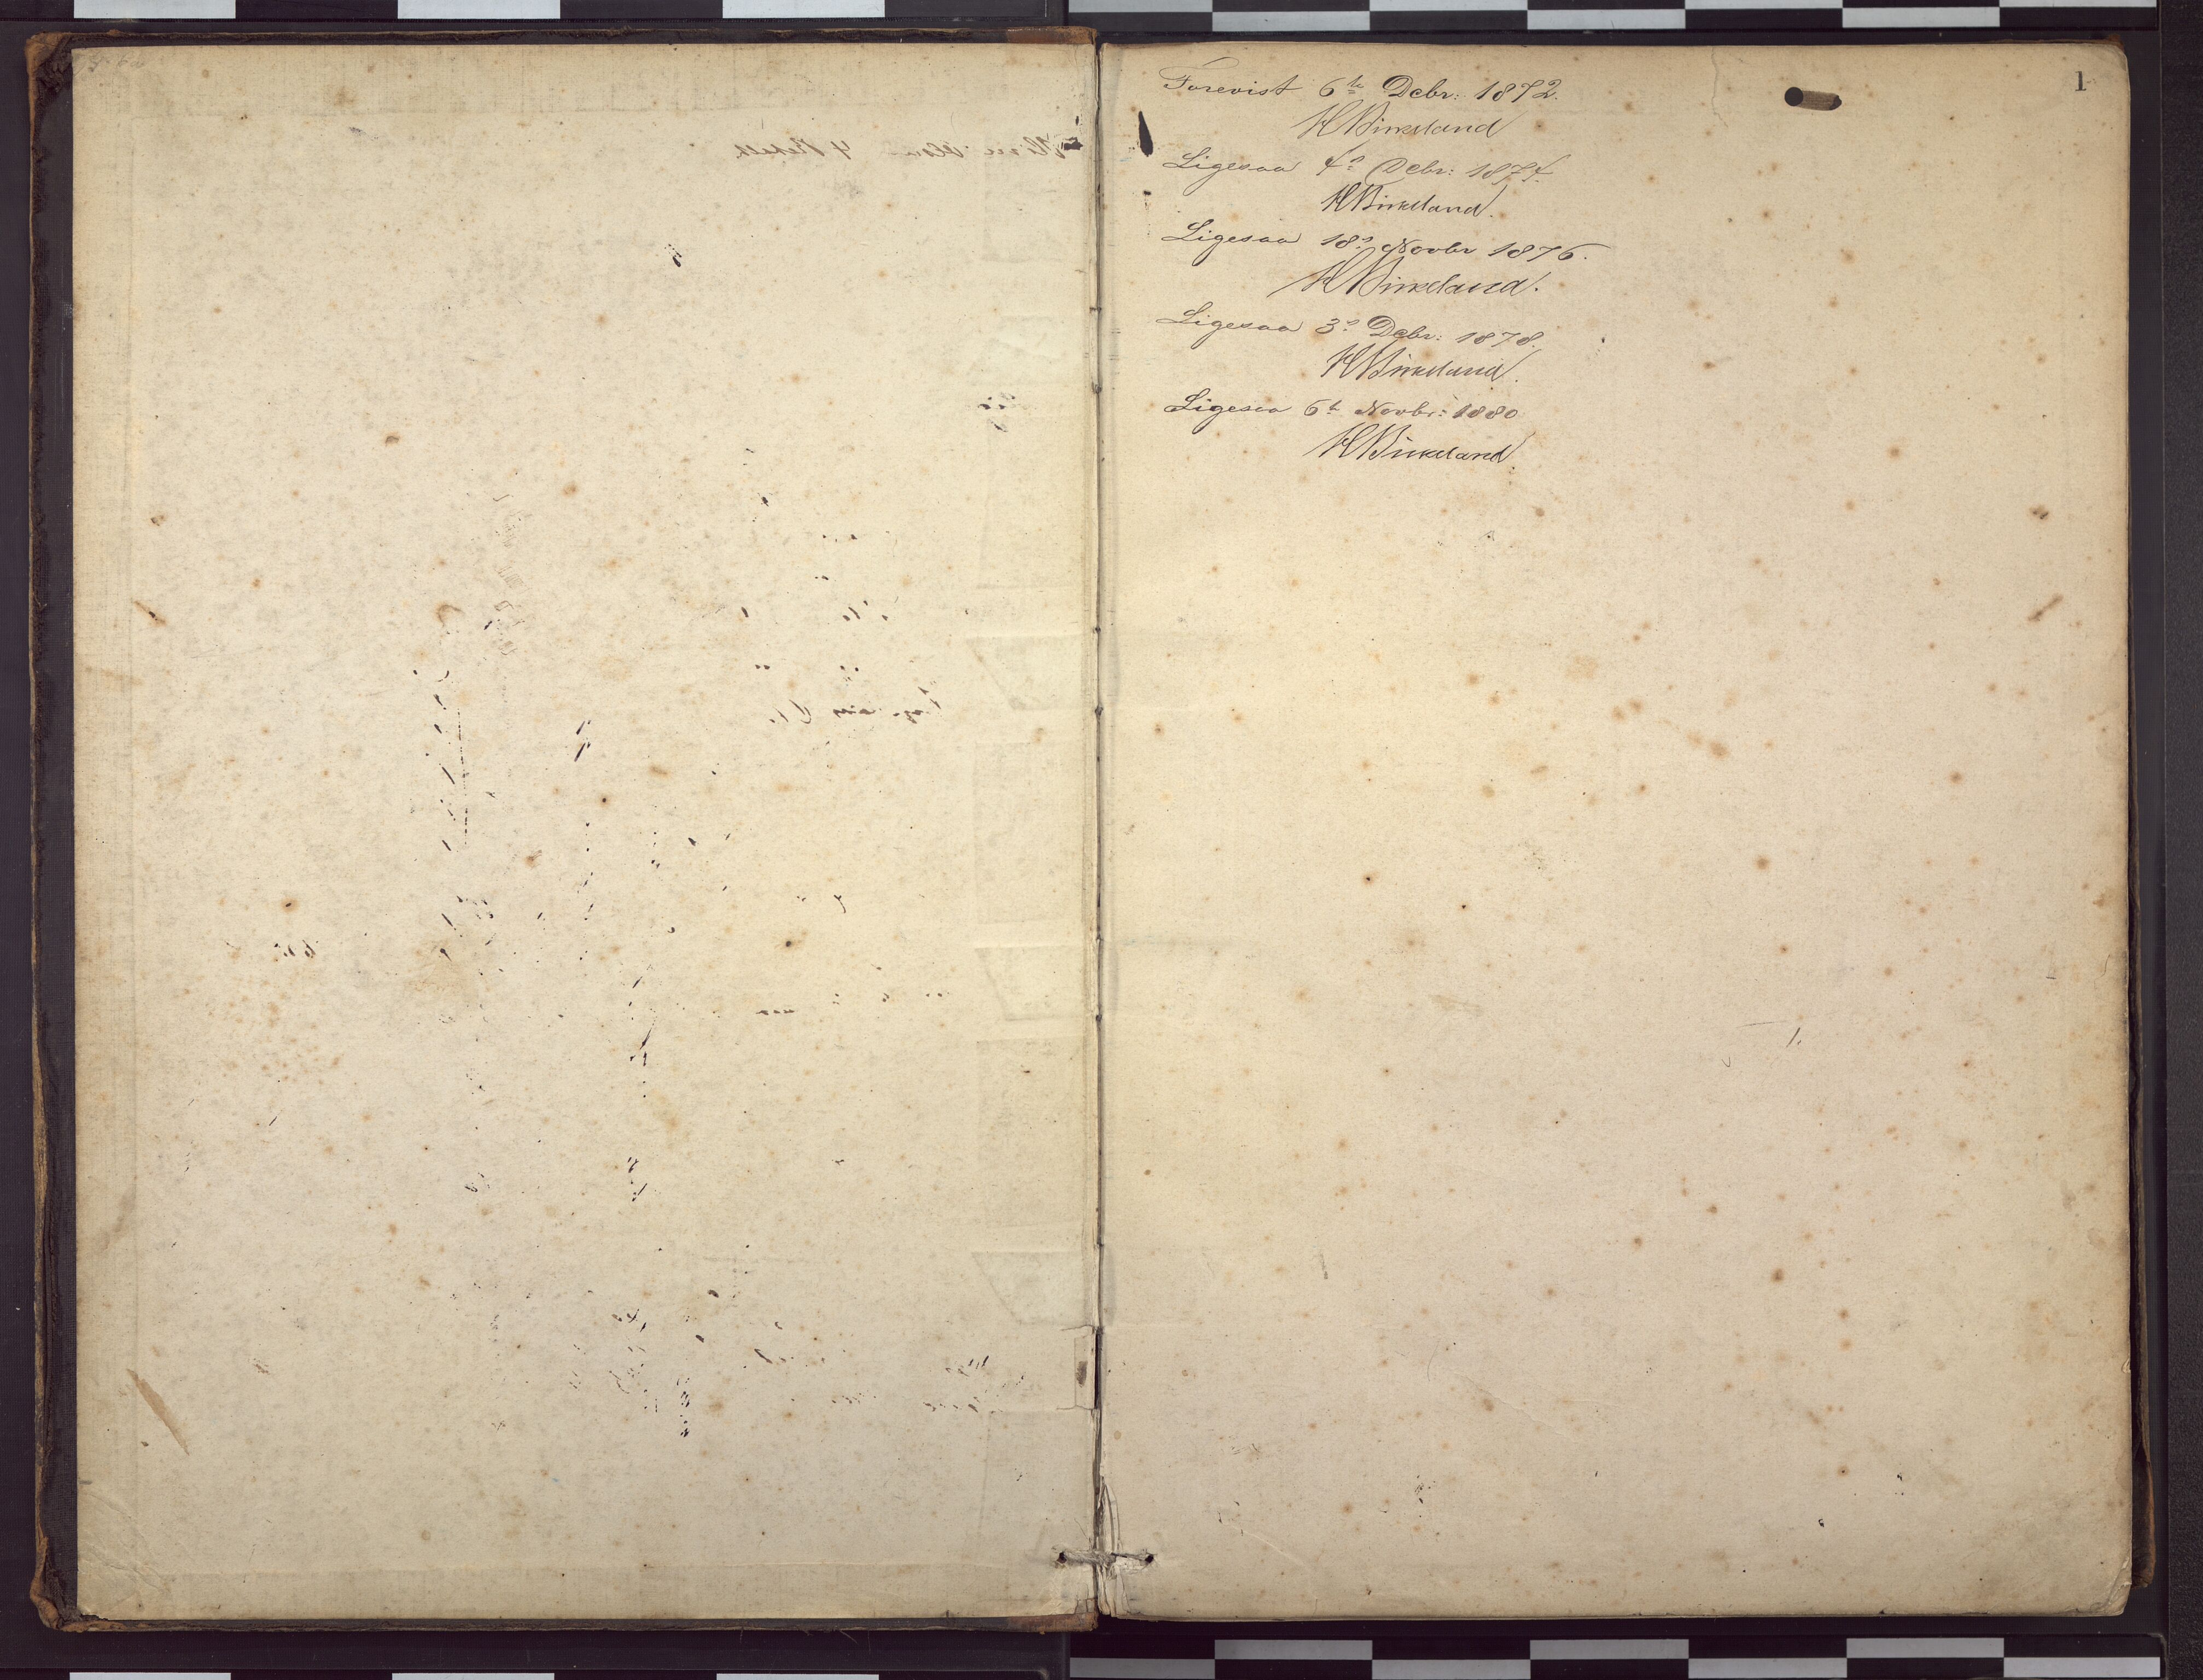 1
Forevist 6te Debr: 1872.
HBirkeland
Ligesaa 4de Debr: 1874.
HBirkeland.
Ligesaa 18de Novbr 1876.
HBirkeland.
Ligesaa 3de Debr: 1878.
HBirkeland.
Ligesaa 6te Novbr: 1880
HBirkeland.